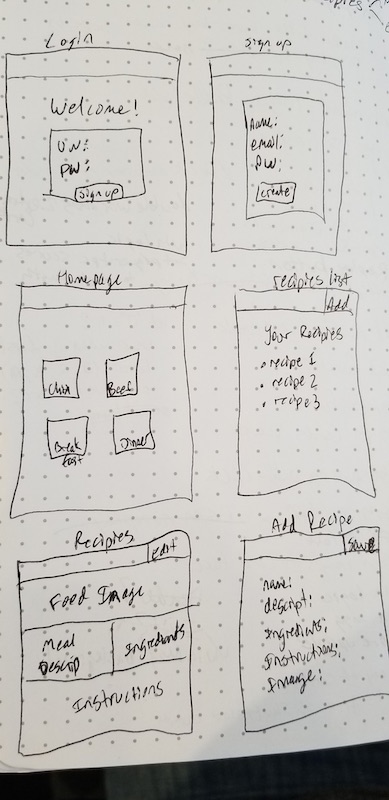 Login
Welcome!
UN:
PW:
Sign up
Sign up
Name:
email:
PW:
Create
Homepage
Beef
Break
fast
Dinner
recipies list
Add
Your Recipies
• recipe 1
• recipe 2
• recipe 3
Recipies
edit
Food Image
Meal
Descrip
Ingredients
Instructions
Add Recipe
Save
name:
descript:
Ingredients:
Instructions:
Image: